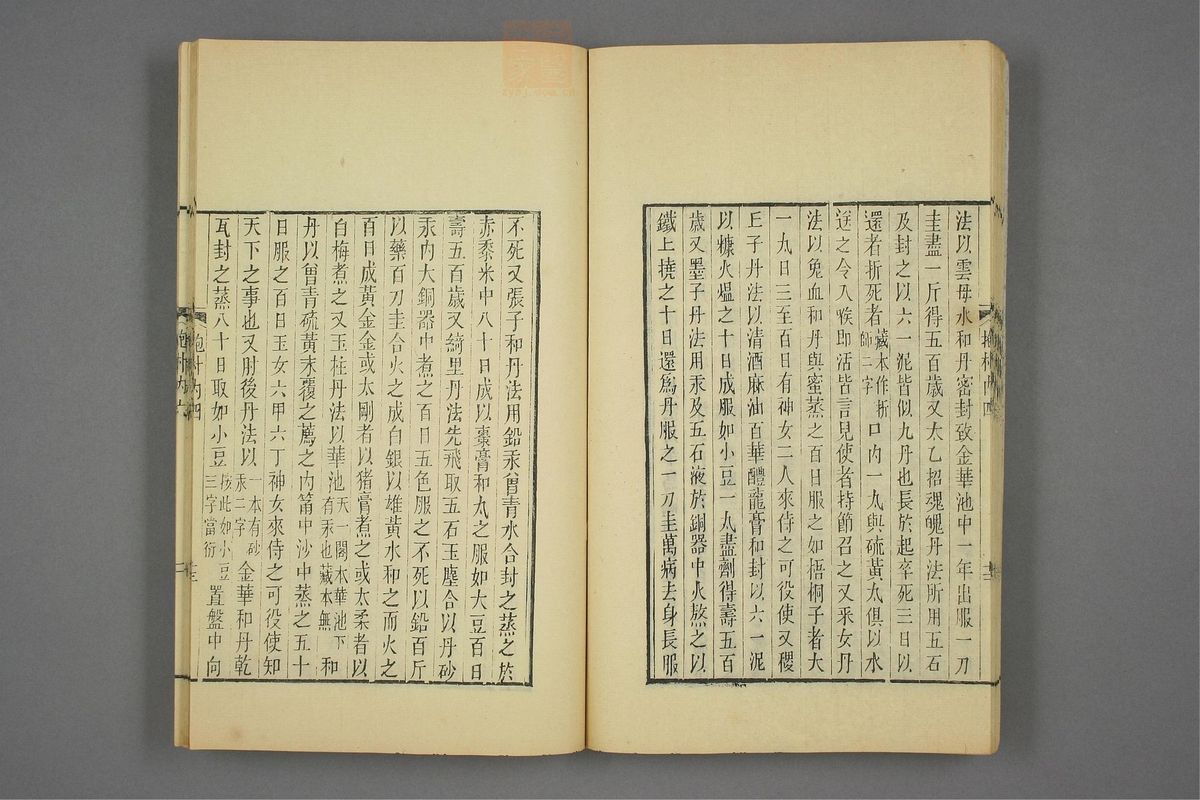 法以雲母水和丹密封致金華池中一年出服一刀
圭盡一斤得五百歲又太乙招魂魄丹法所用五石
及封之以六一泥皆似九丹也長於起卒死三日以
還者折死者藏本作折師二字口內一丸與硫黃丸俱以水
送之令入喉即活皆言見使者持節召之又釆女丹
法以兔血和丹與蜜蒸之百日服之如梧桐子者大
一丸日三至百日有神女二人來侍之可役使又稷
丘子丹法以清酒麻油百華醴龍膏和封以六一泥
以糠火熅之十日成服如小豆一丸盡劑得壽五百
歲又墨子丹法用汞及五石液於銅器中火熬之以
鐵匕撓之十日還為丹服之一刀圭萬病去身長服
不死又張子和丹法用鉛汞曾青水合封之蒸之於
赤黍米中八十日成以棗膏和丸之服如大豆百日
壽五百歲又綺里丹法先飛取五石玉塵合以丹砂
汞內大銅器中煮之百日五色服之不死以鉛百斤
以藥百刀圭合火之成白銀以雄黃水和之而火之
百日成黃金金或太剛者以猪膏煮之或太柔者以
白梅煮之又玉柱丹法以華池天一閣本華池下有汞也藏本無和
丹以曾青硫黃末覆之薦之內筩中沙中蒸之五十
日服之百日玉女六甲六丁神女來侍之可役使知
天下之事也又肘後丹法以一本有砂汞二字金華和丹乾
瓦封之蒸八十日取如小豆按此如小豆三字當衍置盤中向
抱朴內四